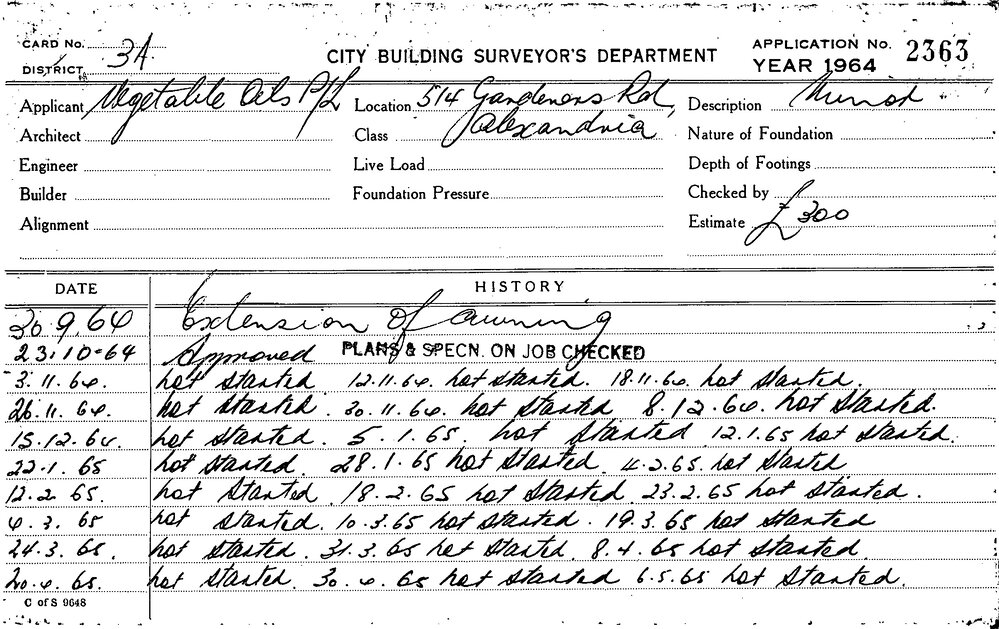 CARD No. 3A CITY BUILDING SURVEYOR'S DEPARTMENT APPLICATION No. 2363
DISTRICT YEAR 1964
Applicant Vegetable Oils P/L Location 514 Gardeners Rd, Description Minor
Architect Class Alexandria Nature of Foundation
Engineer Live Load Depth of Footings
Builder Foundation Pressure Checked by
Alignment Estimate £300
DATE HISTORY
30.9.64 Extension of awning
23.10.64 Approved PLANS & SPECN. ON JOB CHECKED
3.11.64. not started 12.11.64. not started. 18.11.64. not started.
26.11.64. not started. 30.11.64. not started 8.12.64. not started.
15.12.64. not started. 5.1.65. not started 12.1.65 not started.
22.1.65 not started. 28.1.65 not started. 4.2.65. not started
12.2.65. not started 18.2.65 not started. 23.2.65 not started.
4.3.65 not started. 10.3.65 not started. 19.3.65 not started
24.3.65. not started. 31.3.65 not started. 8.4.65 not started
20.4.65. not started 30.4.65 not started 6.5.65 not started.
C of S 9648